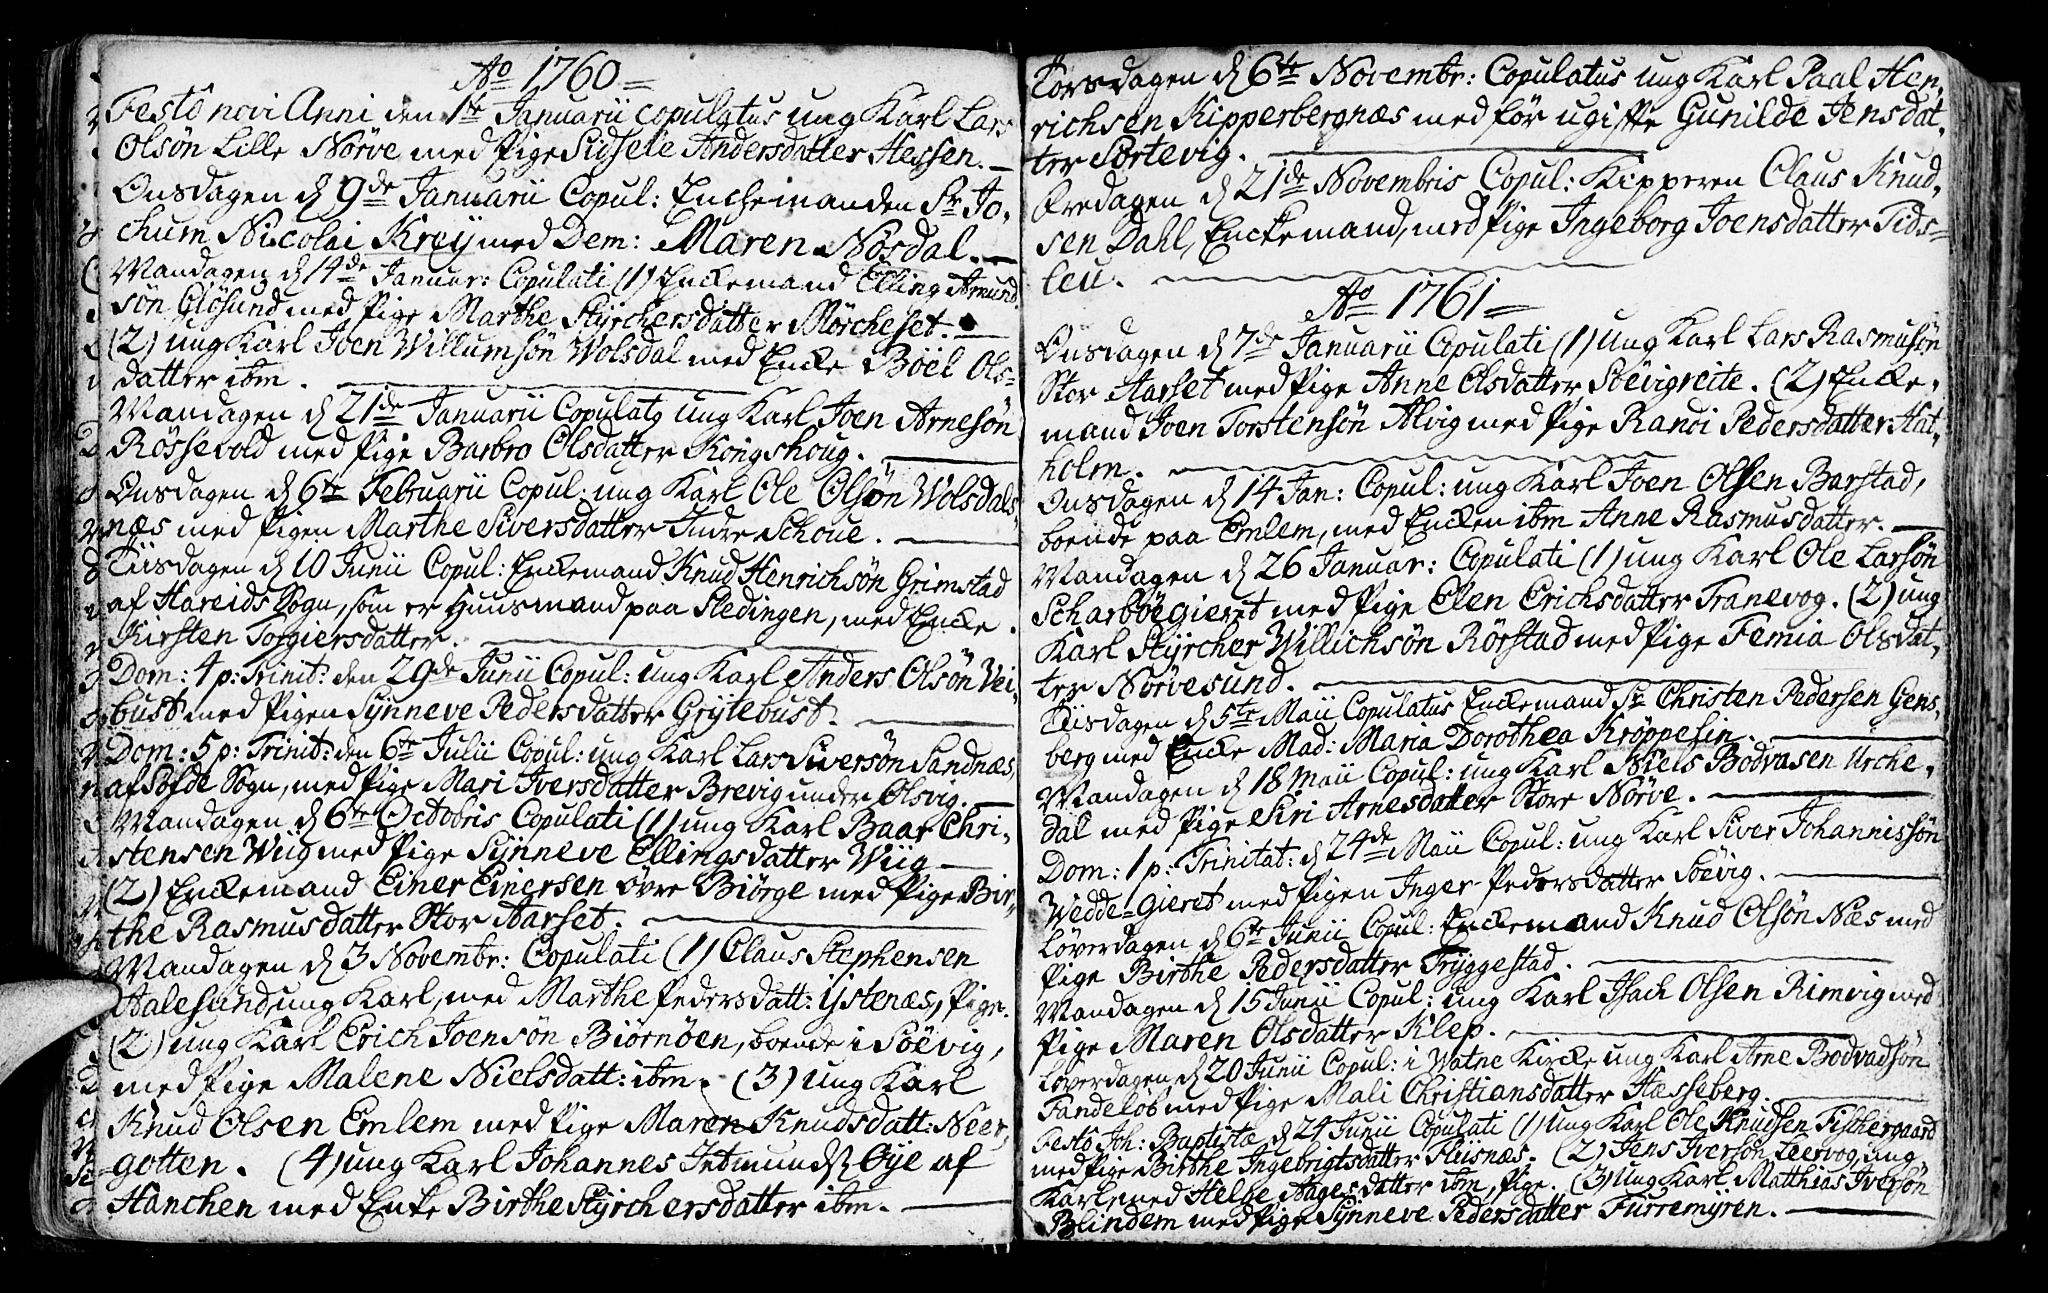 Ao 1760
Festo novi Anni den 1te Januarii copulatus ung Karl Lars
Olsøn Lille Nørve med Pige Sidsele Andersdatter Hessen.
Onsdagen d 9de Januarii Copul: Enchemanden Sr Jo,
chum Nicolai Kreij med Dem: Maren Nøsdal.
Mandagen d 14de Januar: Copulati (1) Enckemand Elling Amund
søn Gløsund med Pige Marthe Styrchersdatter Mørcheset.
(2) ung Karl Joen Willumsøn Wolsdal med Encke Böel Ols=
datter ibm.
Mandagen d 21de Januarii Copulatq ung Karl Joen Arnesøn
Røssevold med Pige Barbro Olsdatter Kongshoug.
Onsdagen d 6te Februarii Copul: ung Karl Ole Olsøn Wolsdals,
næs med Pigen Marthe Siversdatter Indre Schoue.
Tiisdagen d 10 Junii Copul: Enckemand Knud Henrichsøn Grimstad
af Hareids Sogn, som er Huusmand paa Sledingen, med Encke
Kirsten Torgiersdatter.
Dom: 4 p: Trinit: den 29de Junii Copul: ung Karl Anders Olsøn Vei,
bust med Pigen Synneve Pedersdatter Grytebust.
Dom: 5 p: Trinit: den 6te Julii Copul: ung Karl Lars Siversøn Sandnæs
af Søfde Sogn, med Pige Mari Iversdatter Brevig under Olsvig.
Mandagen d 6te Octobris Copulati (1) ung Karl Baar Chri,
stensen Wiig med Pige Synneve Ellingsdatter Wiig
(2) Enckemand Einer Einersen øvre Biørge med Pige Bir,
the Rasmusdatter Stor Aarset.
Mandagen d 3 Novembr: Copulati (1) Claus Stephensen
Aalesund, ung Karl, med Marthe Pedersdatt: Ystenæs, Pige.
(2) ung Karl Erich Joensøn Biørnøen, boende i Søevig,
med Pige Malene Nielsdatt: ibm. (3) ung Karl
Knud Olsen Emlem med Pige Maren Knudsdatt: Neer,
gotten. (4) ung Karl Johannes Jetmunds Øye af
Hanchen med Enke Birthe Styrchersdatter ibm.
Torsdagen d 6te Novembr: Copulatus ung Karl Paal Hen,
richsen Kipperbergnæs med før ugifte Gunilde Jensdat,
ter Sortevig.
Fredagen d 21de Novembris Copul: Kipperen Claus Knud,
sen Dahl, Enckemand, med Pige Ingeborg Joensdatter Tids=
leu.
Ao 1761
Onsdagen d 7de Januarii Copulati (1) ung Karl Lars Rasmusøn
Stor Aarset med Pige Anne Olsdatter Søevigreite. (2) Encke,
mand Joen Torstensøn Alvig med Pige Randi Pedersdatter Hat,
holm.
Onsdagen d 14 Jan: Copul: ung Karl Joen Olsen Barstad,
boende paa Emlem, med Encken ibm Anne Rasmusdatter.
Mandagen d 26 Januar: Copulati (1) ung Karl Ole Larsøn
Scharbøegieret med Pige Elen Erichsdatter Tranevog. (2) ung
Karl Styrcher Willichsøn Rørstad med Pige Femia Olsdat,
ter Nørvesund.
Tiisdagen d 5te Maii Copulatus Enckemand Sr Christen Pedersen Gens,
berg med Encke Mad: Maria Dorothea Krøppelin.
Mandagen d 18 Maii Copul: ung Karl Niels Bodvasen Urche,
dal med Pige Kri Arnesdatter Store Nørve.
Dom: 1 p: Trinitat: d 24de Maii Copul: ung Karl Siver Johannissøn
Wedde=gieret med Pigen Inger Pedersdatter Søevig.
Løverdagen d 6te Junii Copul: Enckemand Knud Olsøn Næs med
Pige Birthe Pedersdatter Tryggestad.
Mandagen d 15 Junii Copul: ung Karl Isach Olsen Rimvig med
Pige Maren Olsdatter Klep.
Løverdagen d 20 Junii Copul: i Watne Kircke ung Karl Arne Bodvadsøn
Tandeløb med Pige Mali Christiansdatter Hæsseberg.
Festo Joh: Baptistæ d 24 Junii Copulati (1) ung Karl Ole Knudsen Fischergaard
med Pige Birthe Ingebrigtsdatter Fliisnæs. (2) Jens Iversøn Leervog, ung
Karl, med Helge Aagesdatter ibm, Pige. (3) ung Karl Matthias Iversøn
Blindem med Pige Synneve Pedersdatter Furremyren.